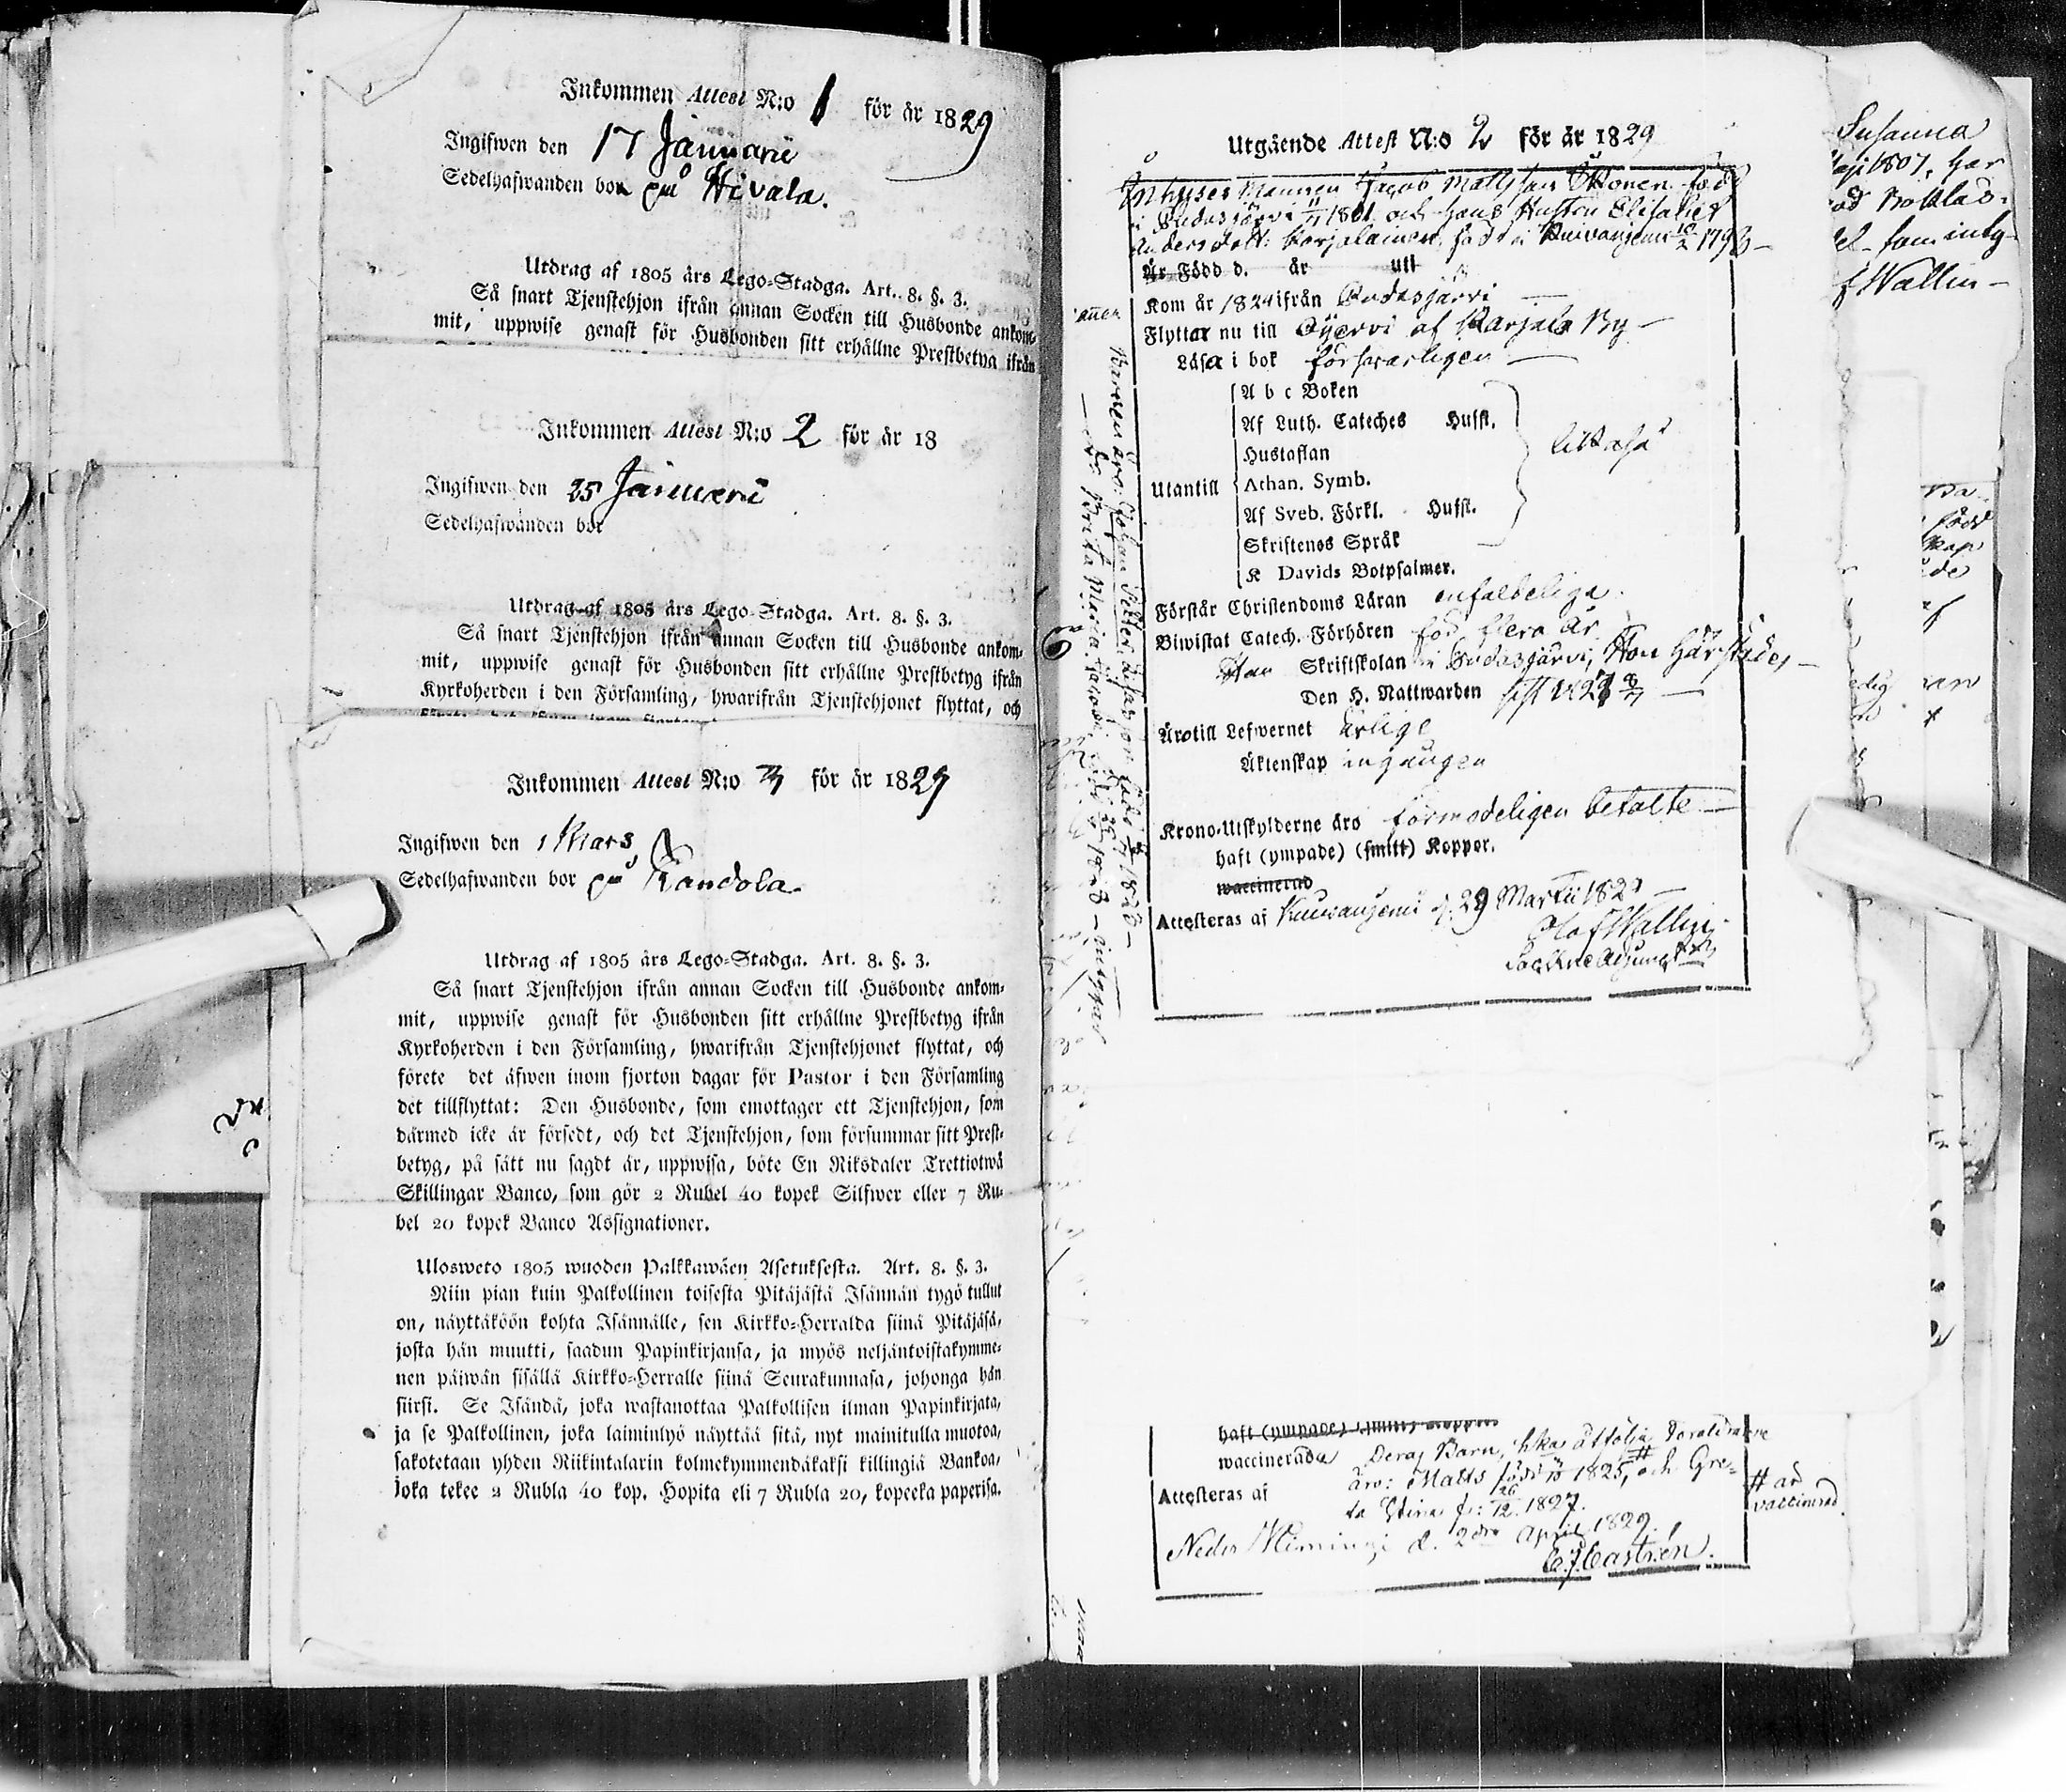 Inkommen Attest N:o 1 för år 1829
Ingifwen den 17 Januarii
Sedelhafwanden bor på Hivala.
Utdrag af 1805 års Lego-Stadga. Art. 8. §. 3.
Så snart Tjenstehjon ifrån annan Socken till Husbonde ankom-
mit, uppwise genast för Husbonden sitt erhållne Prestbetyg ifrån
Inkommen Attest N:o 2 för år 18
Ingifwen den 25 Januarii
Sedelhafwanden bor
Utdrag af 1805 års Lego-Stadga. Art. 8. §. 3.
Så snart Tjenstehjon ifrån annan Socken till Husbonde ankom-
mit, uppwise genast för Husbonden sitt erhållne Prestbetyg ifrån
Kyrkoherden i den Församling, hwarifrån Tjenstehjonet flyttat, och
Inkommen Attest N:o 3 för år 1829
Ingifwen den 1 Mars
Sedelhafwanden bor på Kandola.
Utdrag af 1805 års Lego-Stadga. Art. 8. §. 3.
Så snart Tjenstehjon ifrån annan Socken till Husbonde ankom-
mit, uppwise genast för Husbonden sitt erhållne Prestbetyg ifrån
Kyrkoherden i den Församling, hwarifrån Tjenstehjonet flyttat, och
förete det äfwen inom fjorton dagar för Pastor i den Församling
det tillflyttat: Den Husbonde, som emottager ett Tjenstehjon, som
därmed icke är försedt, och det Tjenstehjon, som försummar sitt Prest-
betyg, på sätt nu sagdt är, uppwisa, böte En Riksdaler Trettiotwå
Skillingar Banco, som gör 2 Rubel 40 kopek Silfwer eller 7 Ru-
bel 20 kopek Banco Assignationer.
Ulosweto 1805 wuoden Palkkawäen Asetuksesta. Art. 8. §. 3.
Niin pian kuin Palkollinen toisesta Pitäjästä Isännän tygö tullut
on, näyttäköön kohta Isännälle, sen Kirkko-Herralda siinä Pitäjäsä,
josta hän muutti, saadun Papinkirjansa, ja myös neljäntoistakymme-
nen päiwän sisällä Kirkko-Herralle siinä Seurakunnasa, johonga hän
siirsi. Se Isändä, joka wastanottaa Palkollisen ilman Papinkirjata,
ja se Palkollinen, joka laiminlyö näyttää sitä, nyt mainitulla muotoa,
sakotetaan yhden Riikintalarin kolmekymmendäkaksi killingiä Bankoa,
joka tekee 2 Rubla 40 kop. Hopita eli 7 Rubla 20, kopecka paperisa.
Utgående Attest N:o 2 för år 1829
Inhyses Mannen Jacob Mattsson Ukonen född
i Pudasjärvi 11/11 1801 och hans Hustru Elisabet
Andersdott: Karjalainen, född i Kuivaniemi 10/2 1793
Är Född d. år uti
Kom år 1824 ifrån Pudasjärvi
Flyttar nu till af Karjala By
Läsa i bok försvarligen
A b c Boken
Af Luth. Cateches Husft.
Hustaflan
Utantill Athan. Symb.
Af Sveb. Förkl. Husft.
Skriftenes Språk
K Davids Botpsalmer.
likaså
Förstår Christendoms Läran enfaldeliga
Biwistat Catech. Förhören för flera år
Han Skriftskolan i Pudasjärvi, Hon härstädes
Den H. Nattwarden sist
Äro till Lefwernet ärlige
Äktenskap ingången
Krono-Utskylderne äro förmodeligen betalte
haft (ympade) (smitt) Koppor.
waccinerad
Attesteras af Kuivaniemi d. 29 Martii 182
Olof Wallin
Sockne Adjunct
Barnen äro: Johan Petter
Brita Maria intygas
haft (ympade) (smitt) Koppor
waccinerada Deras Barn, hka åtfölja Föräldrarne
äro: Matts född 1825, # och Gre-
Attesteras af ta Stina f: 26/12 1827.
# är
vaccinerad
Neder Kiiminge d. 2dra April 1829.
C. J. Castrén.
Susanna
1807, har
f Wallin